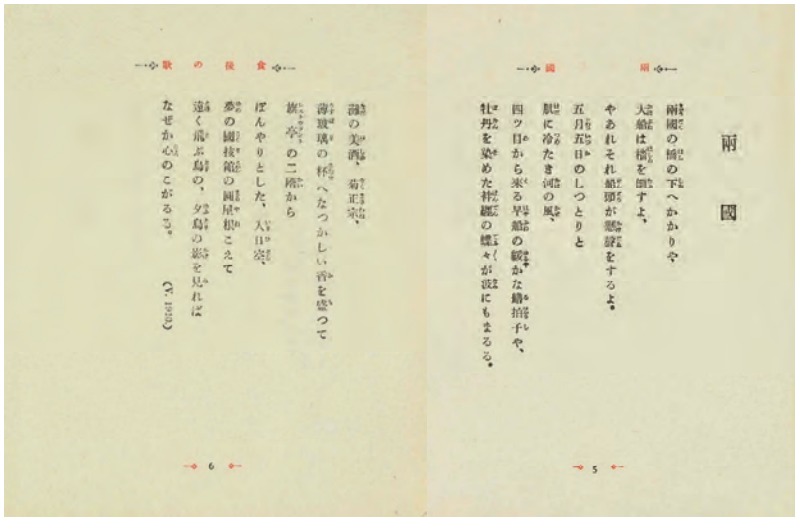 兩國
兩國
兩國の橋の下へかかりや
大船は檣を倒すよ、
やあれそれ船頭が懸聲をするよ。
五月五日のしつとりと
肌に冷たき河の風、
四ツ目から來る早船の緩かな艪拍子や、
牡丹を染めた袢纏の蝶々が波にもまるる。
5
食後の歌
灘の美酒、菊正宗、
薄玻璃の杯へなつかしい香を盛つて
旗亭の二階から
ぼんやりとした、入日空、
夢の國技館の圓屋根こえて
遠く飛ぶ鳥の、夕鳥の影を見れば
なぜか心のこがるる。
(V. 1910.)
6